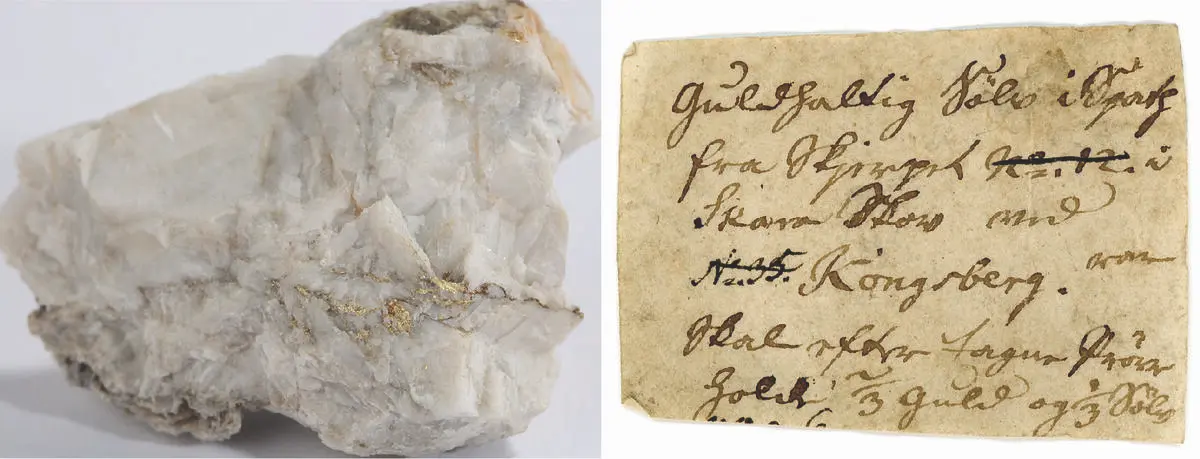 Guldholtig Sölv i Spath
fra Skjerpet No. 12. i
Skara Skov ved
No. 35. Kongsberg. rar
Skal efter tagne Pröve
holde 2/3 Guld og 1/3 Sölv